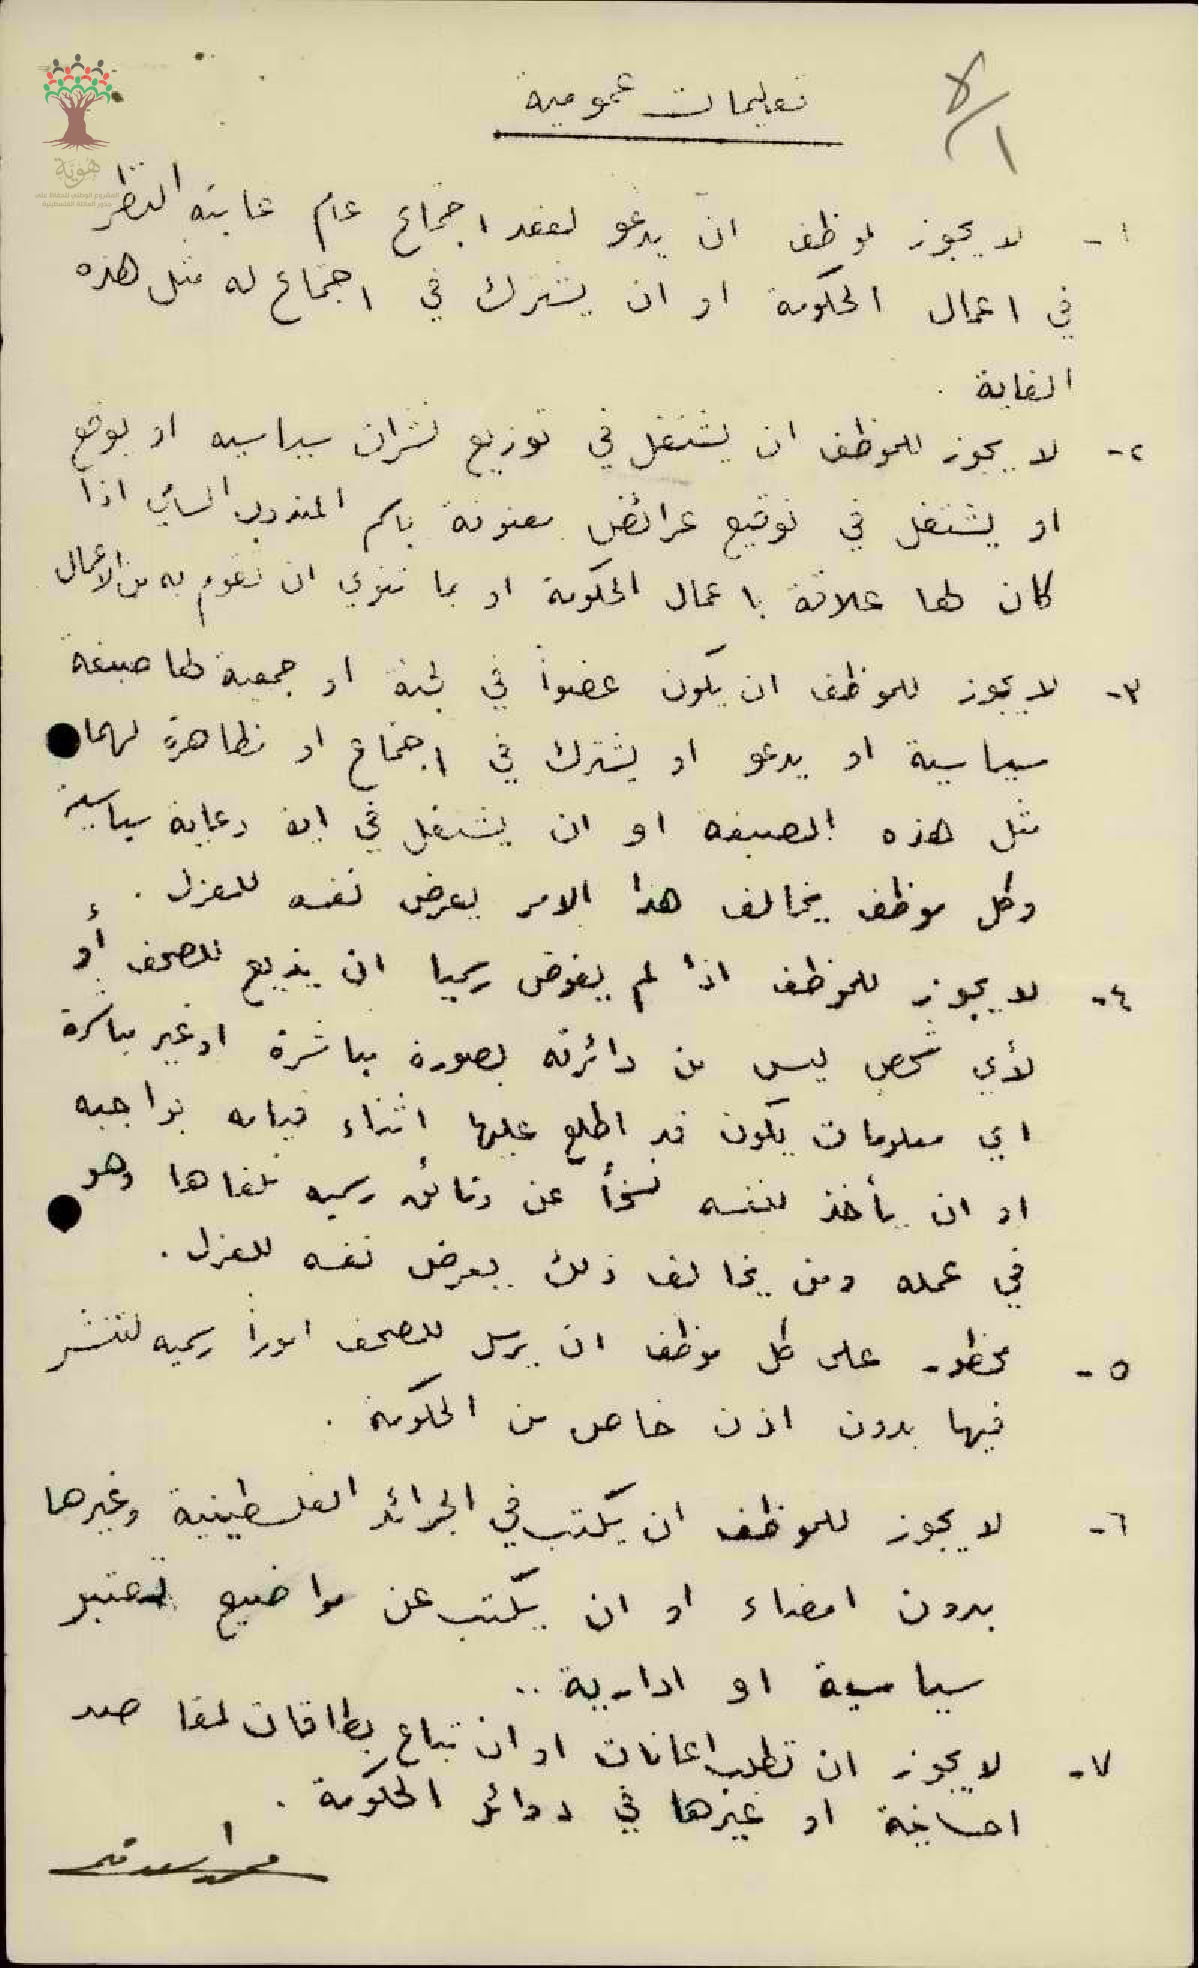 تعليمات عمومية
٨/١
هوية
المشروع الوطني للحفاظ على
جذور العائلة الفلسطينية
١- لا يجوز لموظف ان يدعو لعقد اجتماع عام غايته النظر
في اعمال الحكومة او ان يشترك في اجتماع له مثل هذه
الغاية .
٢- لا يجوز للموظف ان يشتغل في توزيع نشرات سياسيه او يوقع
او يشتغل في توقيع عرائض معنونة باسم المندوب السامي اذا
كان لها علاقة باعمال الحكومة او بما تنوي ان تقوم به من الاعمال
٣- لا يجوز للموظف ان يكون عضواً في لجنة او جمعية لها صبغة
سياسية او يدعو او يشترك في اجتماع او تظاهرة لهما
مثل هذه الصبغة او ان يشتغل في اية دعاية سياسية
وكل موظف يخالف هذا الامر يعرض نفسه للعزل .
٤- لا يجوز للموظف اذا لم يفوض رسميا ان يذيع للصحف أو
لأي شخص ليس من دائرته بصورة مباشرة او غير مباشرة
اي معلومات يكون قد اطلع عليها اثناء قيامه بواجبه
او ان يأخذ لنفسه نسخاً عن وثائق رسميه تلقاها وهو
في عمله ومن يخالف ذلك يعرض نفسه للعزل .
٥- محظور على كل موظف ان يرسل للصحف امورا رسميه لتنشر
فيها بدون اذن خاص من الحكومة .
٦- لا يجوز للموظف ان يكتب في الجرائد الفلسطينية وغيرها
بدون امضاء او ان يكتب عن مواضيع تعتبر
سياسية او ادارية ..
٧- لا يجوز ان تطلب اعانات او ان تباع بطاقات لمقاصد
احسانية او غيرها في دوائر الحكومة .